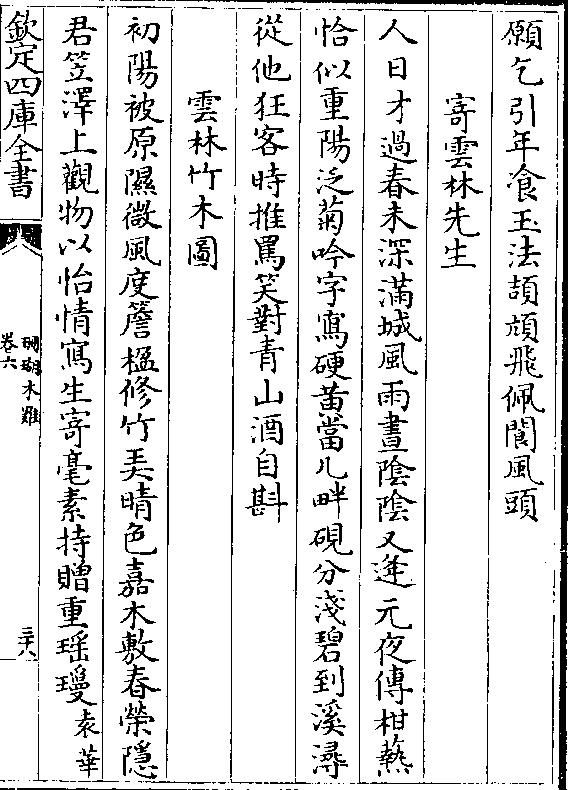 願乞引年飡玉法頡頏飛佩閬風頭
寄雲林先生
人日才過春未深滿城風雨晝陰陰又逢元夜傳柑爇
恰似重陽泛菊吟字寫硬黃當几畔硯分淺碧到溪潯
從他狂客時推罵笑對青山酒自斟
雲林竹木圖
初陽被原隰微風度簷楹修竹弄晴色嘉木敷春榮隱
君笠澤上觀物以怡情寫生寄毫素持贈重瑶瓊袁華
欽定四庫全書
珊瑚木難
卷六
三十八